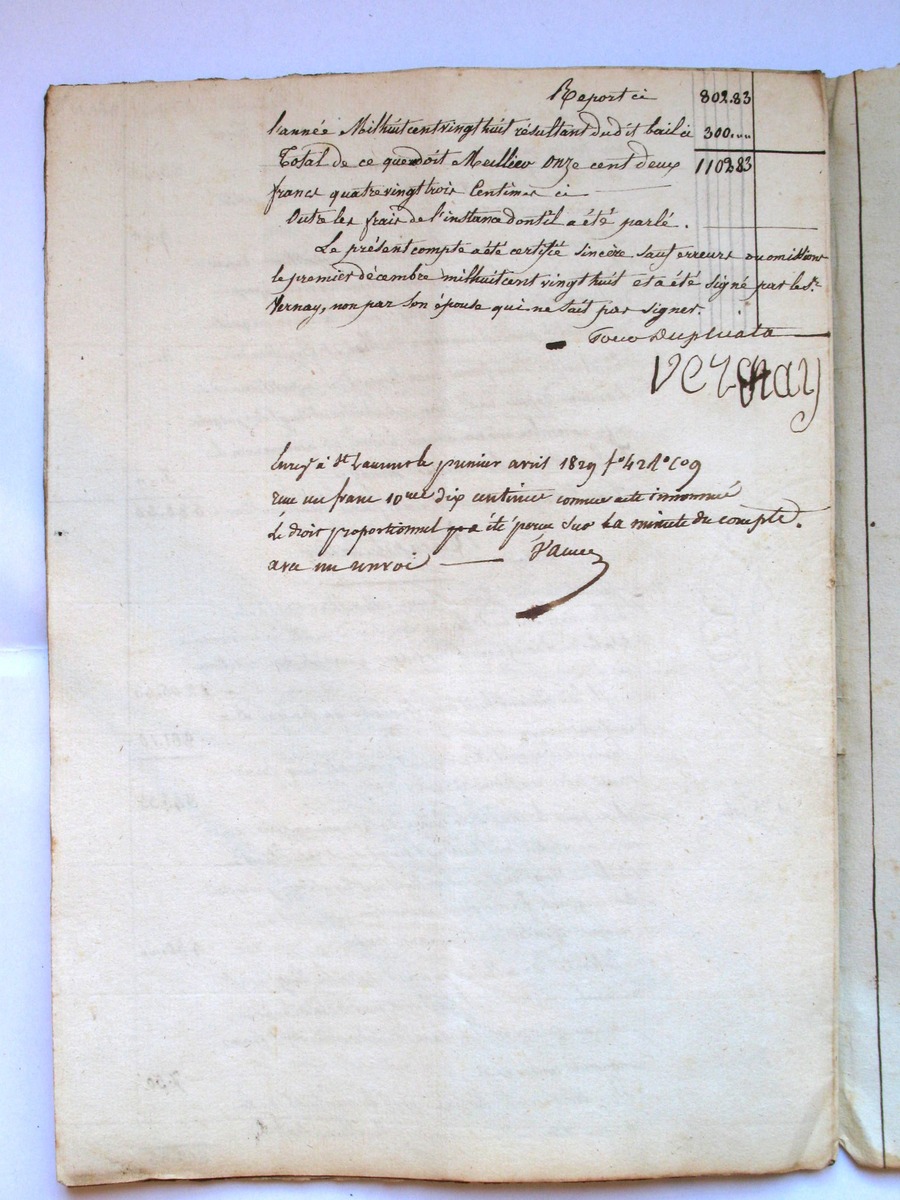 Report ci 802.83
l'année Mil huit cent vingt huit résultant dudit bail ci 300....
Total de ce que doit Meillieu onze cent deux 1102.83
francs quatre vingt trois Centimes ci
Outre les frais de l'instance dont il a été parlé.
Le présent compte a été certifié sincère sauf erreurs ou omissions
le premier décembre mil huit cent vingt huit et a été signé par le Sr.
Vernay, non par son épouse qui ne sait pas signer.
Pour Duplicata
Vernay
Enregé à St Laurent le premier avril 1829 fo 42 Ro Co 9
reçu un franc 10me dix centimes comme acte innommé
Le droit proportionnel a été perçu sur la minute du compte.
avec un renvoi